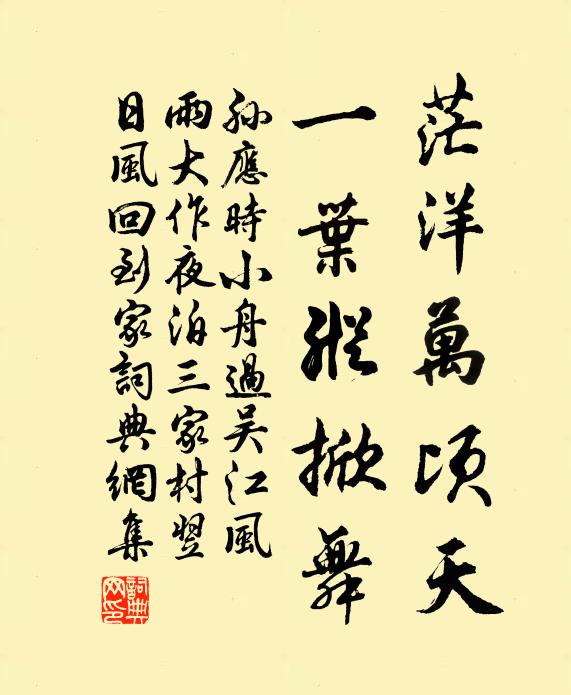 茫洋萬頃天
一葉縱掀舞
孫應時小舟過吴江風
雨大作夜泊三家村翌
日風回到家詞典網集
詞典
网印